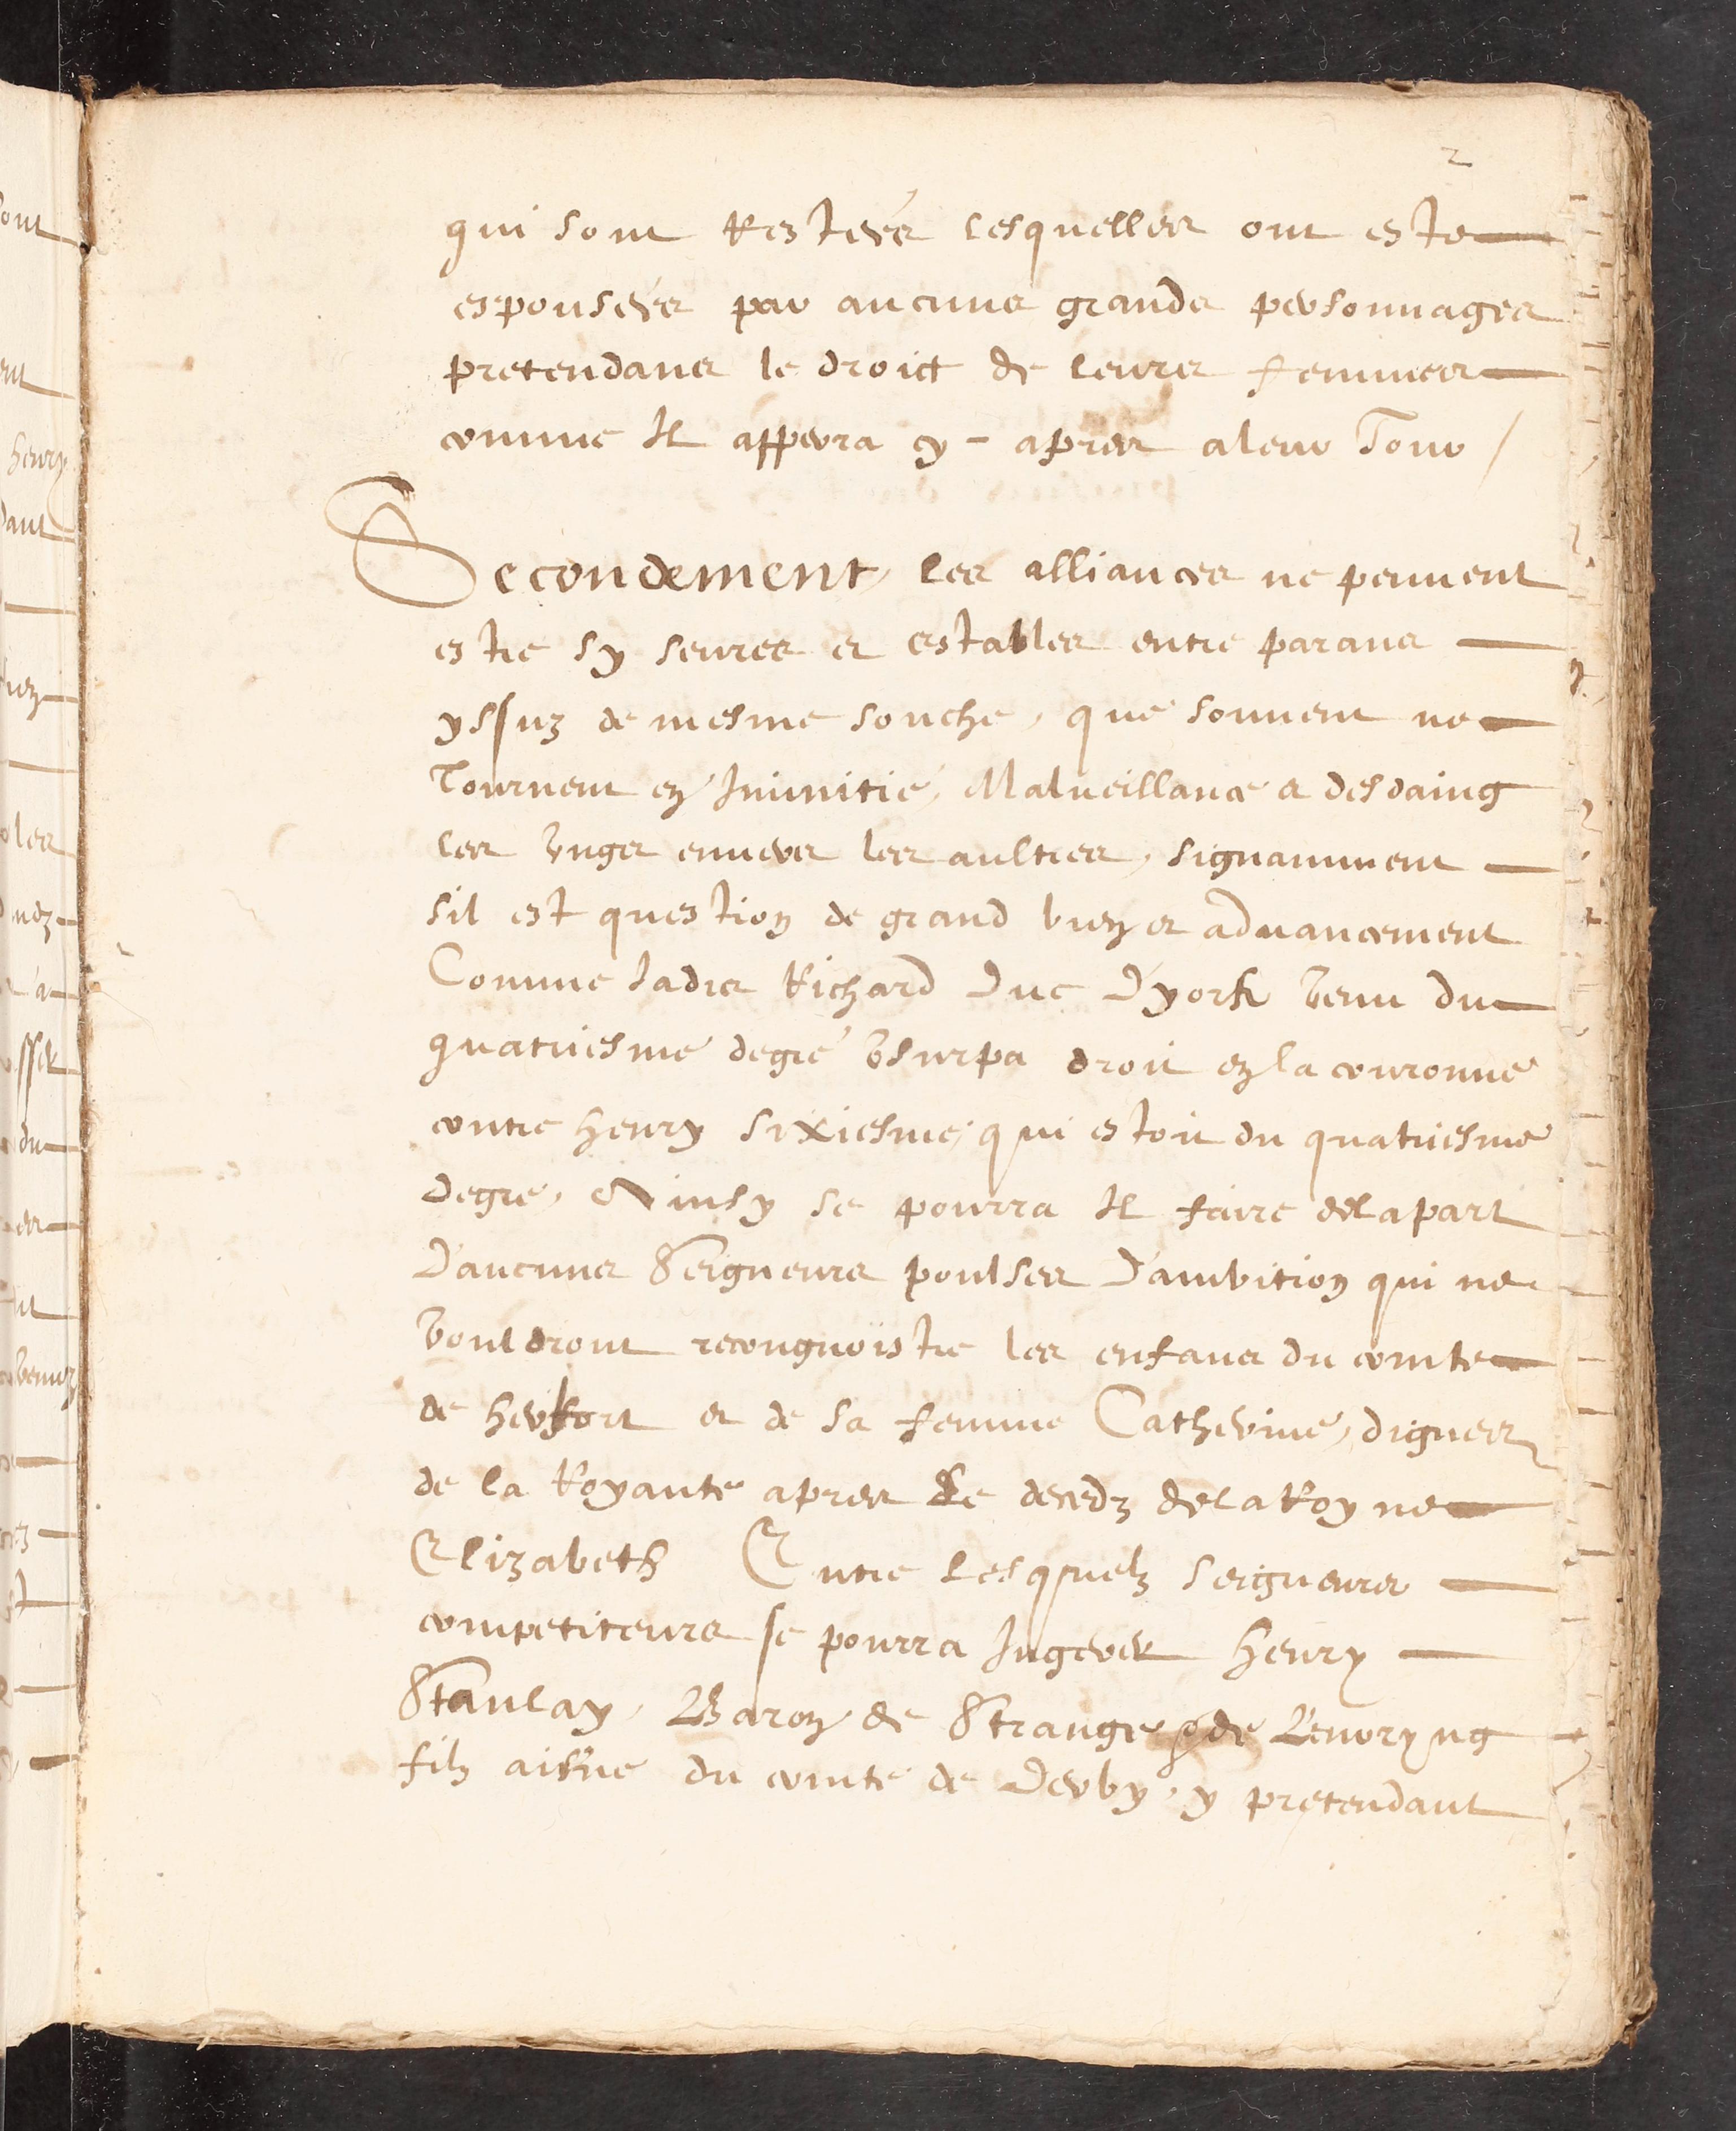 2
qui sont Restéés lesquelles ont este
espouséés par aucuns grands personnages
pretendans le droict de leurs femmes
comme Il apperra cy-apres a leur Tour /
Secondement, les alliances ne peuuent
estre sy seures et estables entre parans
yssuz de mesme souche, que souuent ne
Tournent en Inimitié, Malueillance & desdaing
les vngs enuers les aultres, signamment
sil est question de grand bien et aduancement
Comme Jadis Richard Duc D'york venu du
quatriesme degré vsurpa droit en la couronne
contre henry sixiesme, qui estoit du quatriesme
degre, Ainsy se pourra Il faire de la part
D'aucuns Seigneurs poulses D'ambition qui ne
vouldront recongnoistre les enfans du comte
de herfort et de sa femme Catherine, dignes
de la Royaute apres le decedz de la Royne
Elizabeth Entre lesquelz seigneurs
competiteurs se pourra Ingerer henry
Stanlay, Baron de Strange & de
filz aisne du comte de Derby, y pretendant